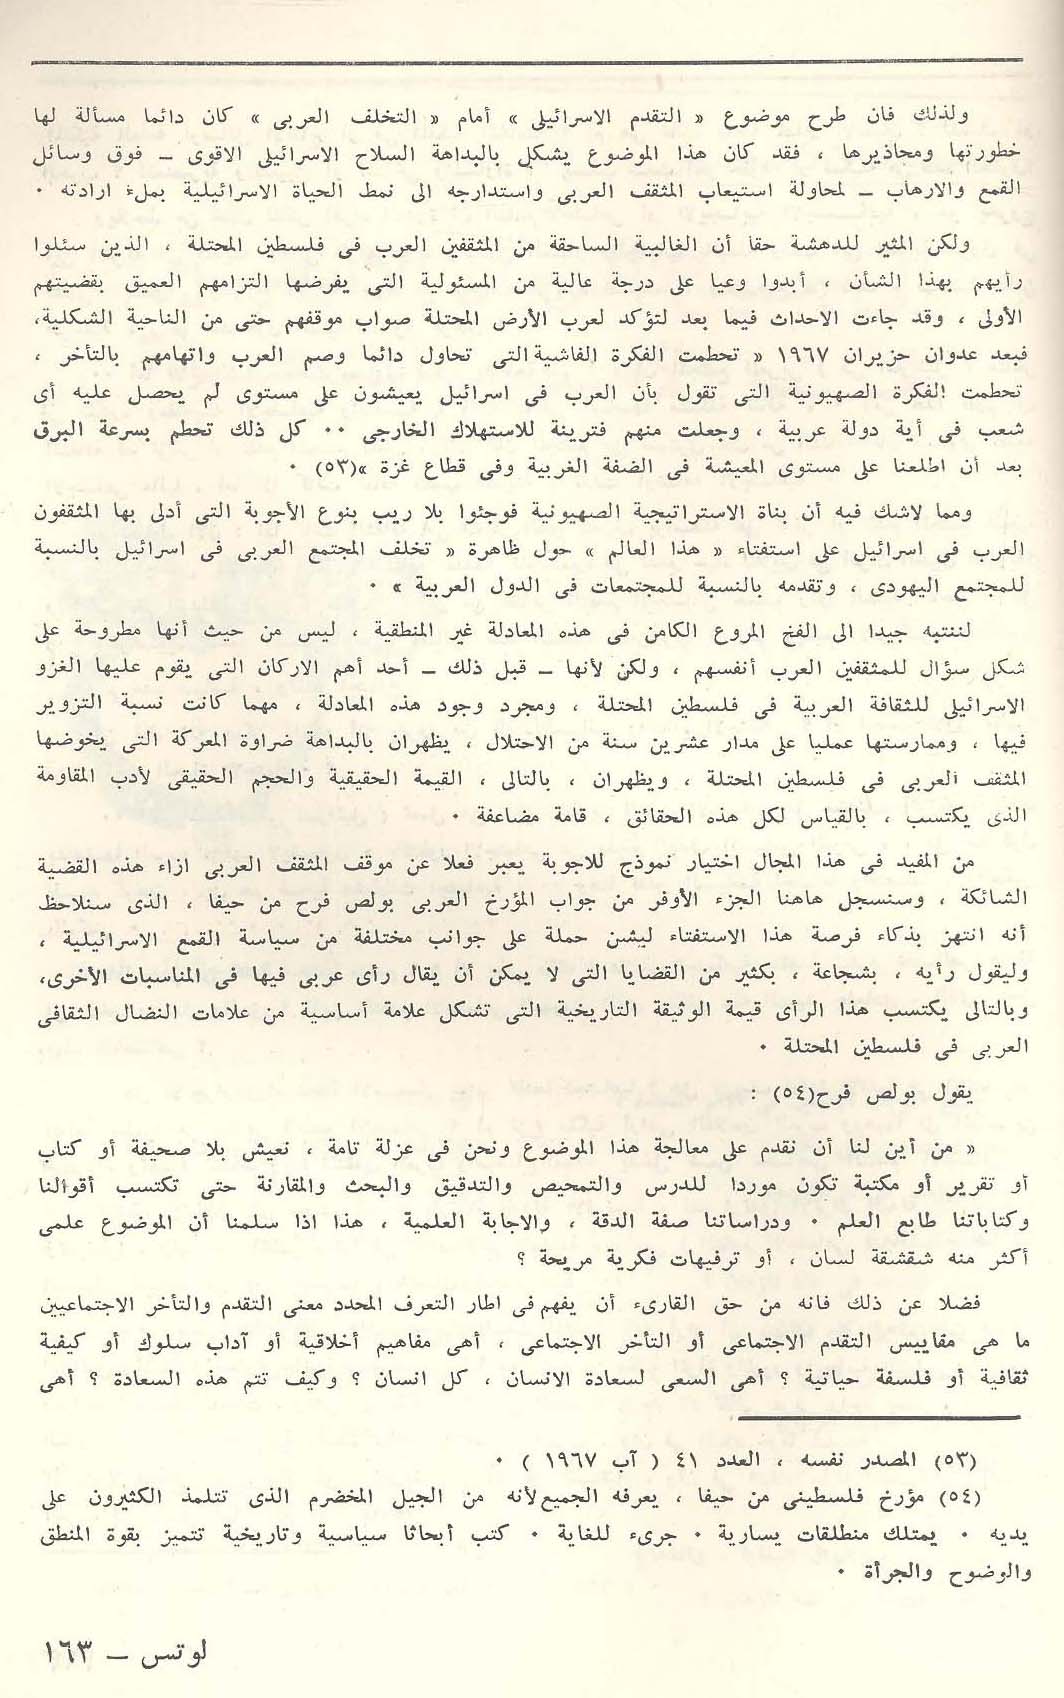 ولذلك فان طرح موضوع « التقدم الاسرائيلى » أمام « التخلف العربى » كان دائما مسألة لها
خطورتها ومحاذيرها ، فقد كان هذا الموضوع يشكل بالبداهة السلاح الاسرائيلى الاقوى – فوق وسائل
القمع والارهاب – لمحاولة استيعاب المثقف العربى واستدارجه الى نمط الحياة الاسرائيلية بملء ارادته ٠
ولكن المثير للدهشة حقا أن الغالبية الساحقة من المثقفين العرب فى فلسطين المحتلة ، الذين سئلوا
رأيهم بهذا الشأن ، أبدوا وعيا على درجة عالية من المسئولية التى يفرضها التزامهم العميق بقضيتهم
الأولى ، وقد جاءت الاحداث فيما بعد لتؤكد لعرب الأرض المحتلة صواب موقفهم حتى من الناحية الشكلية،
فبعد عدوان حزيران ١٩٦٧ « تحطمت الفكرة الفاشية التى تحاول دائما وصم العرب واتهامهم بالتأخر ،
تحطمت الفكرة الصهيونية التى تقول بأن العرب فى اسرائيل يعيشون على مستوى لم يحصل عليه أى
شعب فى أية دولة عربية ، وجعلت منهم فترينة للاستهلاك الخارجى ٠٠ كل ذلك تحطم بسرعة البرق
بعد أن اطلعنا على مستوى المعيشة فى الضفة الغربية وفى قطاع غزة »(٥٣) ٠
ومما لاشك فيه أن بناة الاستراتيجية الصهيونية فوجئوا بلا ريب بنوع الأجوبة التى أدلى بها المثقفون
العرب فى اسرائيل على استفتاء « هذا العالم » حول ظاهرة « تخلف المجتمع العربى فى اسرائيل بالنسبة
للمجتمع اليهودى ، وتقدمه بالنسبة للمجتمعات فى الدول العربية » ٠
لننتبه جيدا الى الفخ المروع الكامن فى هذه المعادلة غير المنطقية ، ليس من حيث أنها مطروحة على
شكل سؤال للمثقفين العرب أنفسهم ، ولكن لأنها – قبل ذلك – أحد أهم الاركان التى يقوم عليها الغزو
الاسرائيلى للثقافة العربية فى فلسطين المحتلة ، ومجرد وجود هذه المعادلة ، مهما كانت نسبة التزوير
فيها ، وممارستها عمليا على مدار عشرين سنة من الاحتلال ، يظهران بالبداهة ضراوة المعركة التى يخوضها
المثقف العربى فى فلسطين المحتلة ، ويظهران ، بالتالى ، القيمة الحقيقية والحجم الحقيقى لأدب المقاومة
الذى يكتسب ، بالقياس لكل هذه الحقائق ، قامة مضاعفة ٠
من المفيد فى هذا المجال اختيار نموذج للاجوبة يعبر فعلا عن موقف المثقف العربى ازاء هذه القضية
الشائكة ، وسنسجل هاهنا الجزء الأوفر من جواب المؤرخ العربى بولص فرح من حيفا ، الذى سنلاحظ
أنه انتهز بذكاء فرصة هذا الاستفتاء ليشن حملة على جوانب مختلفة من سياسة القمع الاسرائيلية ،
وليقول رأيه ، بشجاعة ، بكثير من القضايا التى لا يمكن أن يقال رأى عربى فيها فى المناسبات الأخرى،
وبالتالى يكتسب هذا الرأى قيمة الوثيقة التاريخية التى تشكل علامة أساسية من علامات النضال الثقافى
العربى فى فلسطين المحتلة ٠
يقول بولص فرح(٥٤) :
« من أين لنا أن نقدم على معالجة هذا الموضوع ونحن فى عزلة تامة ، نعيش بلا صحيفة أو كتاب
أو تقرير أو مكتبة تكون موردا للدرس والتمحيص والتدقيق والبحث والمقارنة حتى تكتسب أقوالنا
وكتاباتنا طابع العلم ٠ ودراساتنا صفة الدقة ، والاجابة العلمية ، هذا اذا سلمنا أن الموضوع علمى
أكثر منه شقشقة لسان ، أو ترفيهات فكرية مريحة ؟
فضلا عن ذلك فانه من حق القارىء أن يفهم فى اطار التعرف المحدد معنى التقدم والتأخر الاجتماعيين
ما هى مقاييس التقدم الاجتماعى أو التأخر الاجتماعى ، أهى مفاهيم أخلاقية أو آداب سلوك أو كيفية
ثقافية أو فلسفة حياتية ؟ أهى السعى لسعادة الانسان ، كل انسان ؟ وكيف تتم هذه السعادة ؟ أهى
(٥٣) المصدر نفسه ، العدد ٤١ ( آب ١٩٦٧ ) ٠
(٥٤) مؤرخ فلسطينى من حيفا ، يعرفه الجميع لأنه من الجيل المخضرم الذى تتلمذ الكثيرون على
يديه ٠ يمتلك منطلقات يسارية ٠ جرىء للغاية ٠ كتب أبحاثا سياسية وتاريخية تتميز بقوة المنطق
والوضوح والجرأة ٠
لوتس – ١٦٣